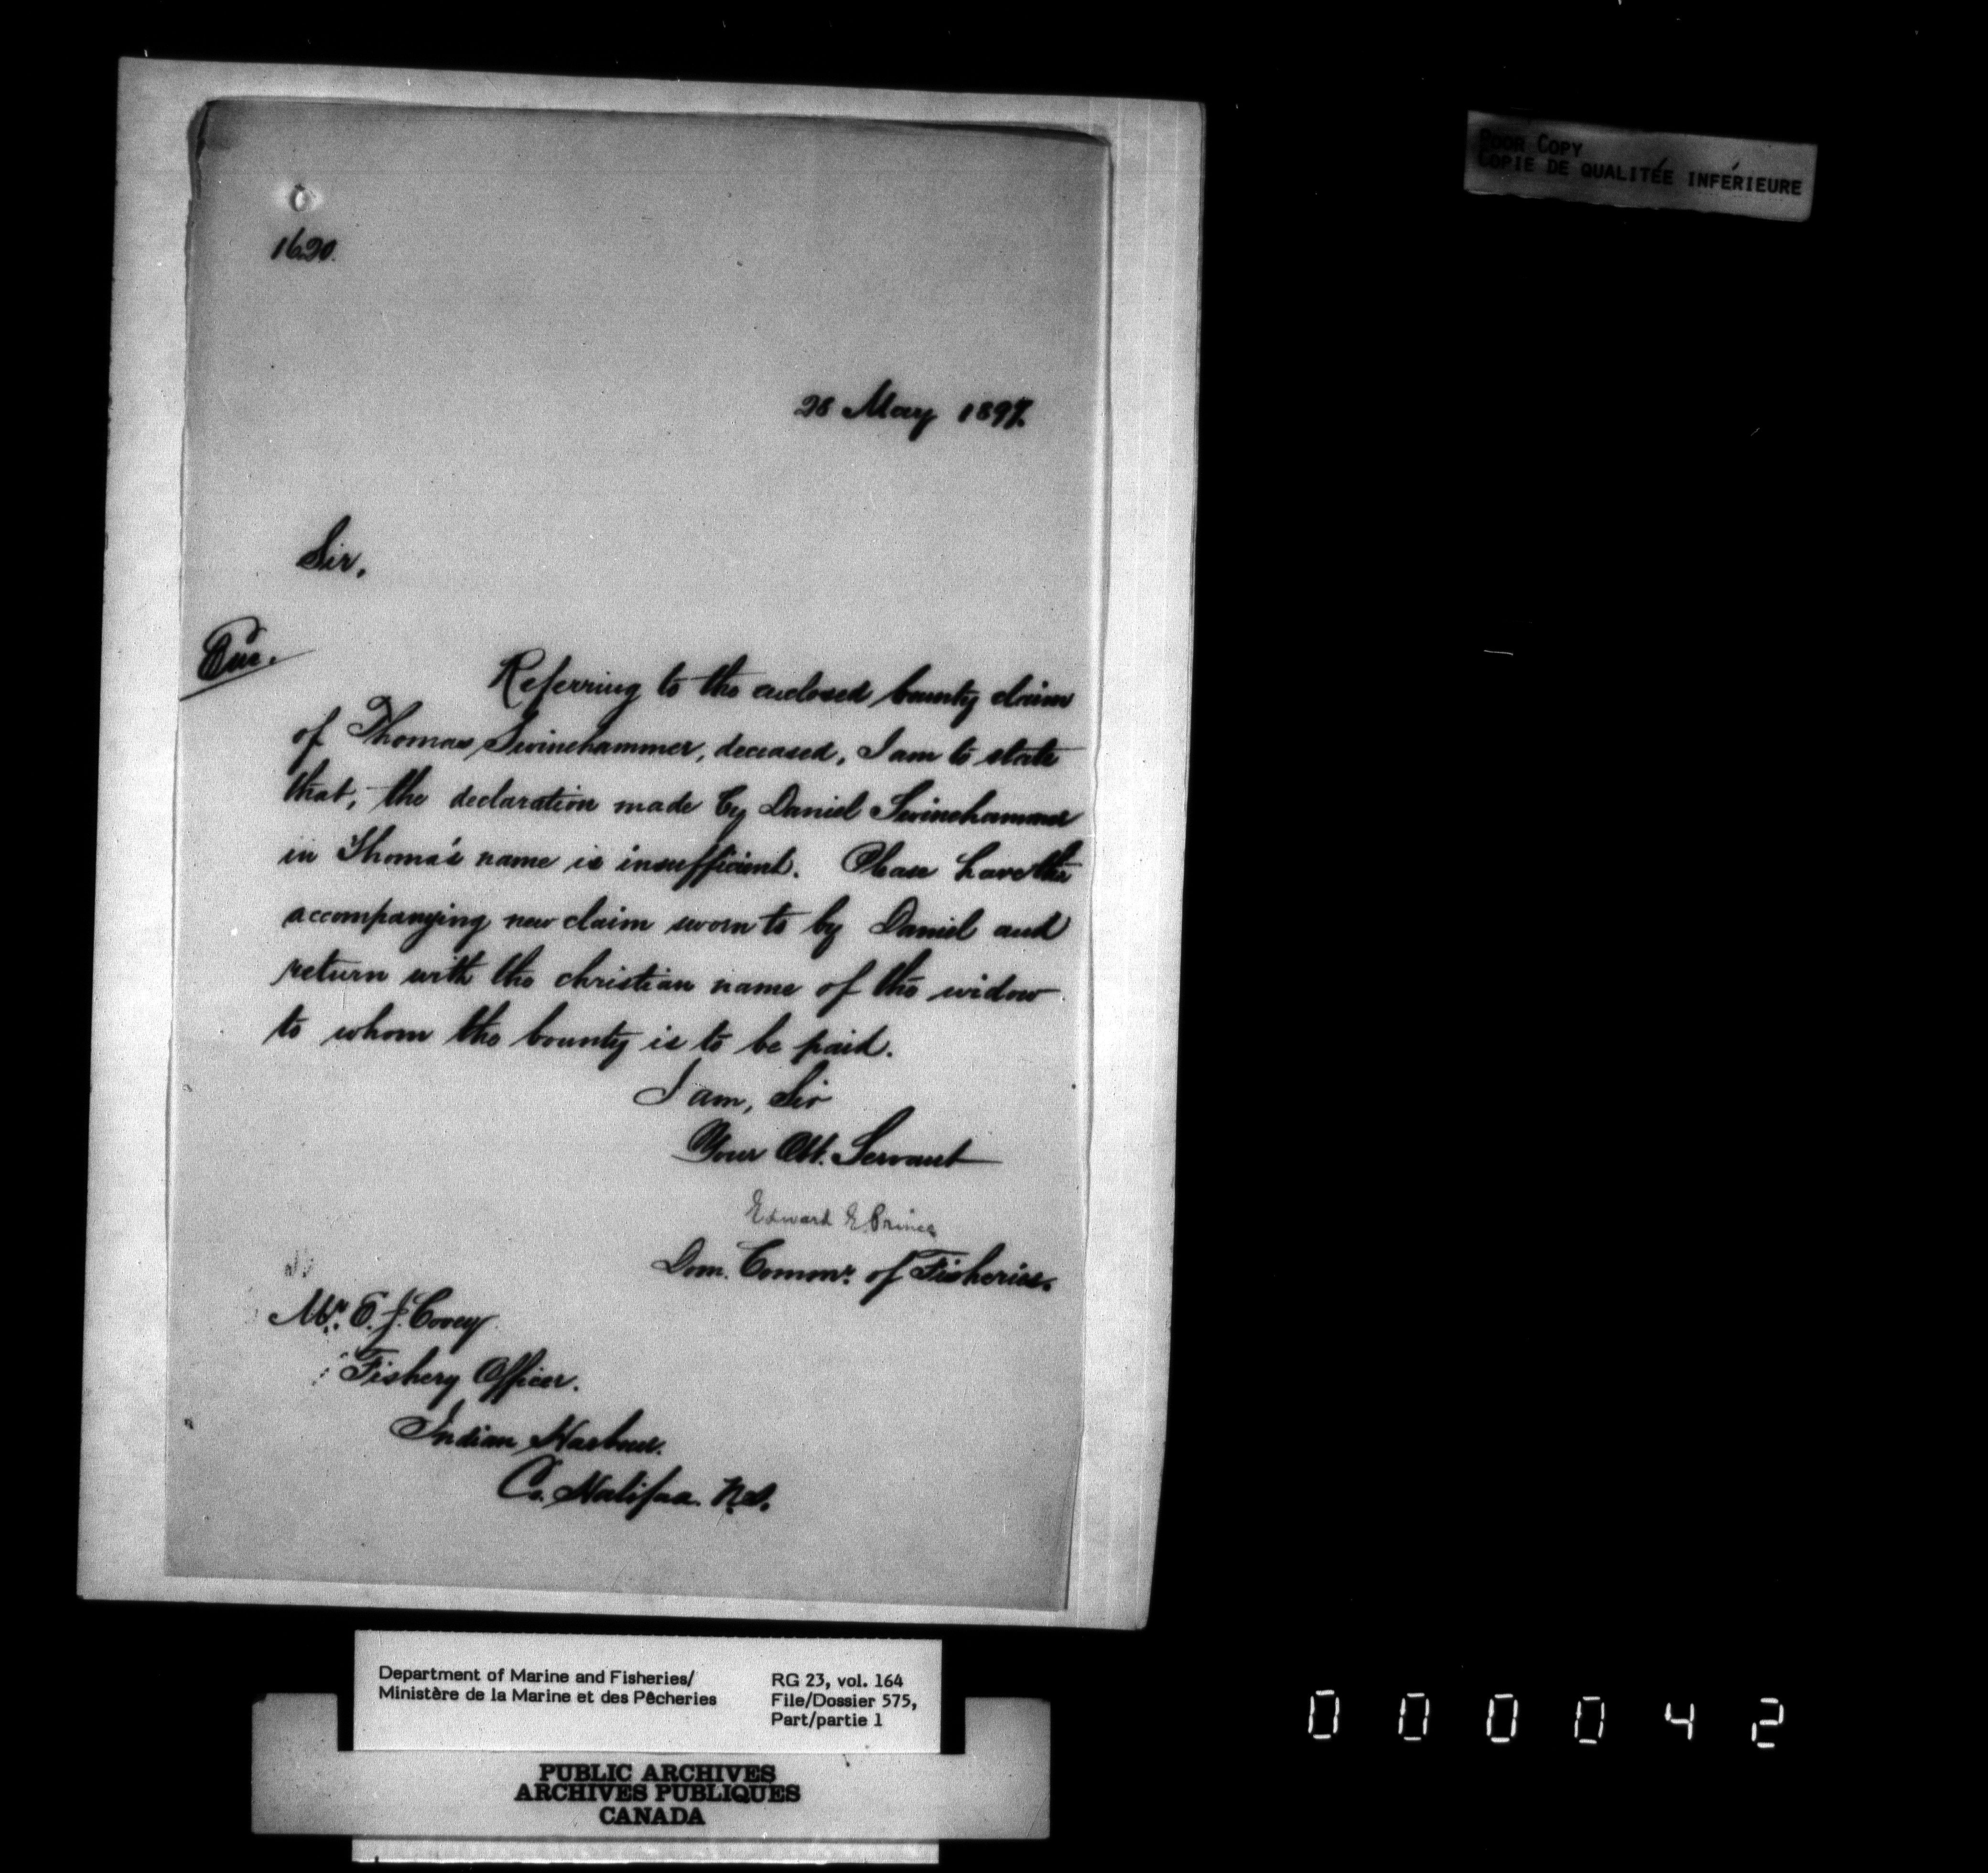 POOR COPY
COPIE DE QUALITÉE INFÉRIEURE
1620.
28 May 1897.
Sir,
Enc.
Referring to the enclosed bounty claim
of Thomas Swinehammer, deceased, I am to state
that, the declaration made by Daniel Swinehammer
in Thoma's name is insufficient. Please have the
accompanying new claim sworn to by Daniel and
return with the christian name of the widow
to whom the bounty is to be paid.
I am, Sir
Your Obt. Servant
Edward E. Prince
Dom. Commr. of Fisheries.
Mr. E. J. Covey
Fishery Officer.
Indian Harbour.
Co. Halifax. N.S.
Department of Marine and Fisheries/
Ministère de la Marine et des Pêcheries
RG 23, vol. 164
File/Dossier 575,
Part/partie 1
PUBLIC ARCHIVES
ARCHIVES PUBLIQUES
CANADA
000042